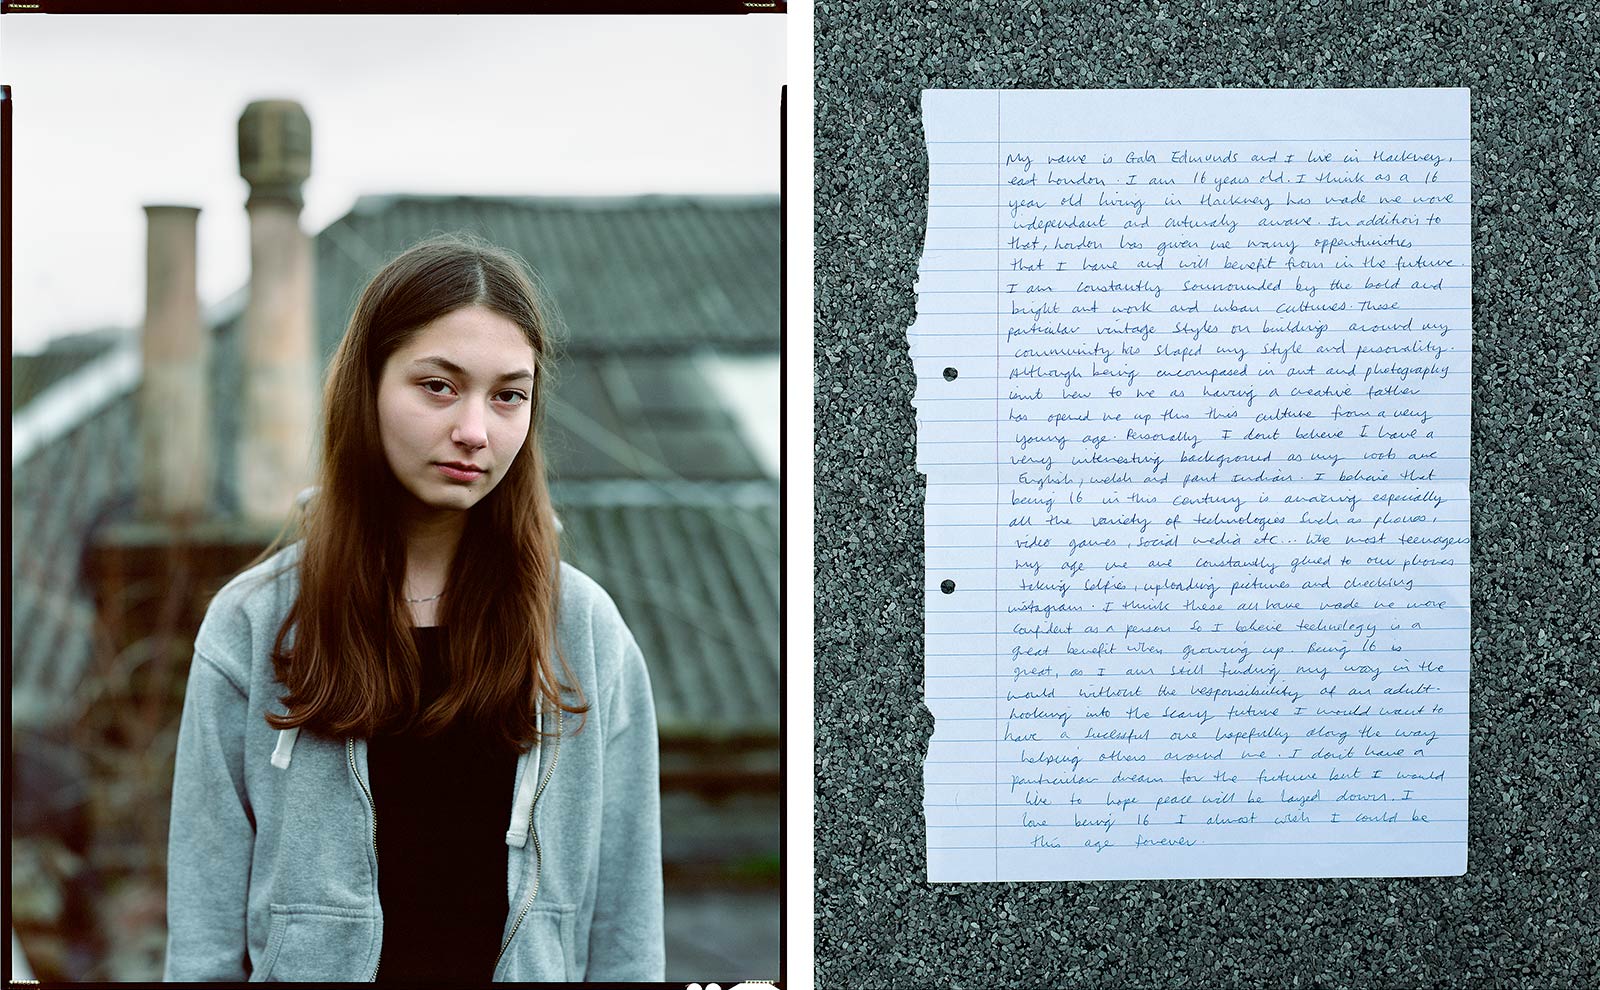 My name is Gala Edmunds and I live in Hackney,
east London. I am 16 years old. I think as a 16
year old living in Hackney has made me more
independant and culturaly aware. In addition to
that, London has given me many oppertunities
that I have and will benefit from in the future.
I am constantly sourrounded by the bold and
bright art work and urban cultures. These
particular vintage styles on buildings around my
community has shaped my style and personality.
Although being encompased in art and photography
isn't new to me as having a creative father
has opened me up this this culture from a very
young age. Personally I don't believe I have a
very interesting background as my roots are
English, welsh and part Indian. I believe that
being 16 in this century is amazing especially
all the variety of technologies such as phones,
video games, social media etc... like most teenagers
my age we are constantly glued to our phones
taking selfies, uploading pictures and checking
instagram. I think these all have made me more
confident as a person so I believe technology is a
great benefit when growing up. Being 16 is
great, as I am still finding my way in the
world without the responsibility of an adult.
Looking into the scary future I would want to
have a sucessful one hopefully along the way
helping others around me. I don't have a
particular dream for the future but I would
like to hope peace will be layed down. I
love being 16 I almost wish I could be
this age forever.